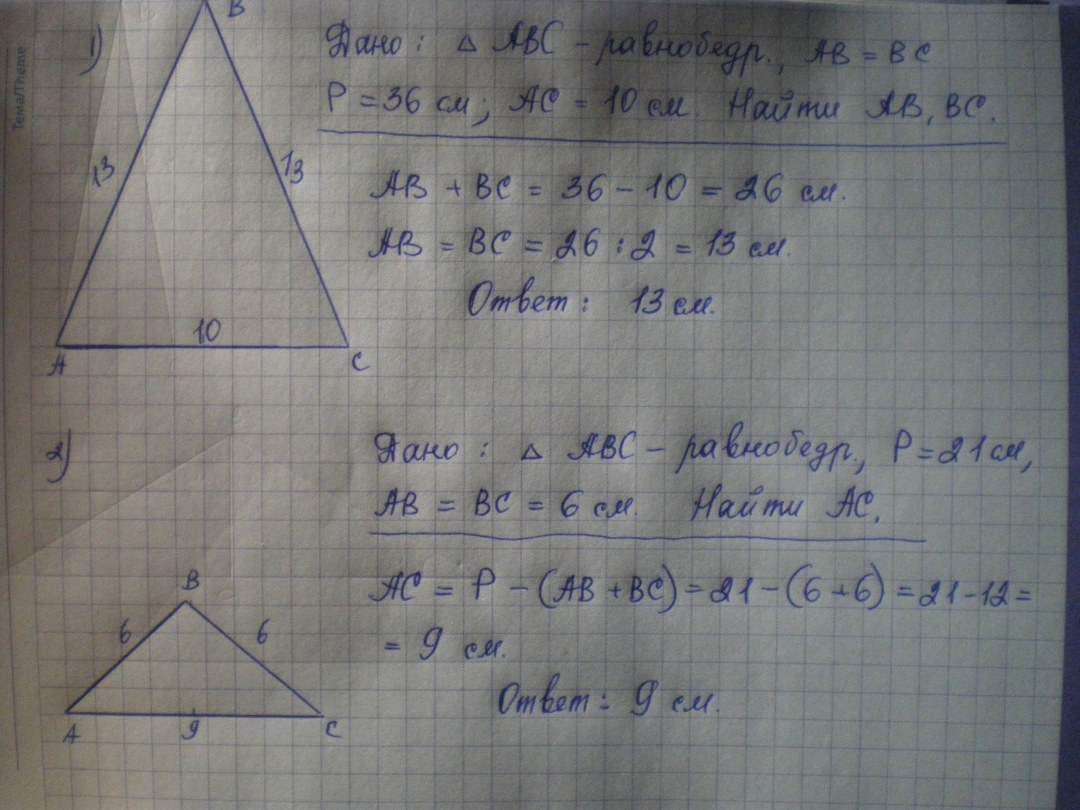 Тема/Theme
1)
Дано: △ ABC – равнобедр., AB = BC
P = 36 см; AC = 10 см. Найти AB, BC.
AB + BC = 36 – 10 = 26 см.
AB = BC = 26 : 2 = 13 см.
Ответ: 13 см.
B
13
13
10
A
C
2)
Дано: △ ABC – равнобедр., P = 21 см,
AB = BC = 6 см. Найти AC.
AC = P – (AB + BC) = 21 – (6 + 6) = 21 - 12 =
= 9 см.
Ответ: 9 см.
B
6
6
A
9
C